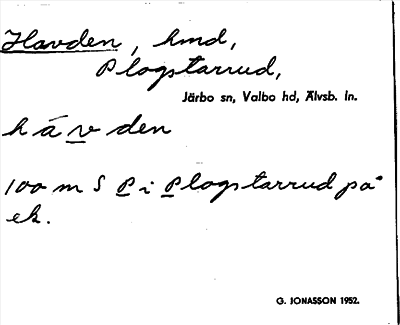 Havden, hmd,
Plogstarrud,
Järbo sn, Valbo hd, Älvsb. ln.
hávden
100 m S P i Plogstarrud på
ek.
G. JONASSON 1952.